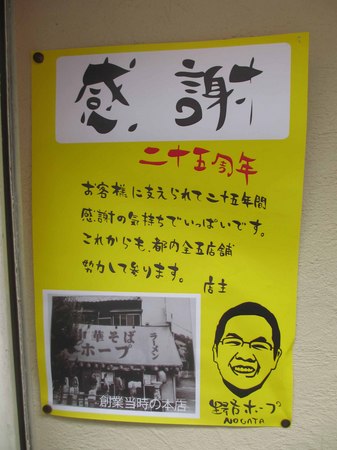 感謝
二十五周年
お客様に支えられて二十五年間
感謝の気持ちでいっぱいです。
これからも、都内全五店舗
努力して参ります。
店主
中華そば
ホープ
ラーメン
創業当時の本店
野方ホープ
NOGATA